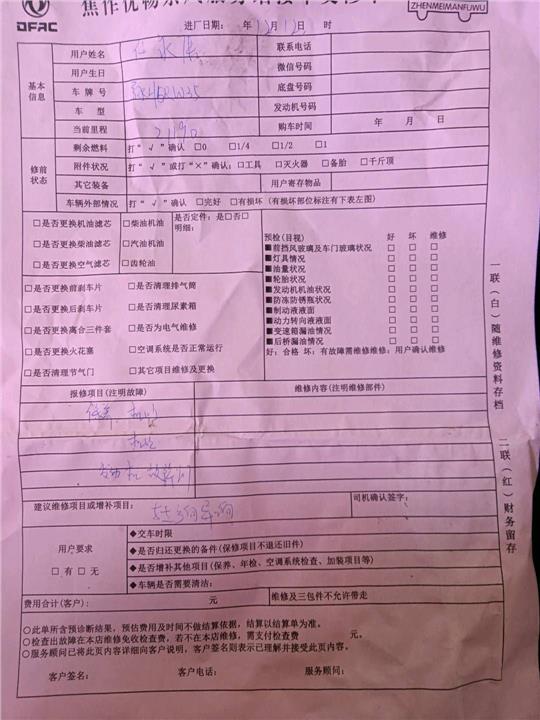 DFAC
ZHENMEIMANFUWU
进厂日期： 年 12月12日 时
基本信息
用户姓名 联系电话
用户生日 微信号码
车 牌 号 底盘号码
车 型 发动机号码
当前里程 21190 购车时间 年 月 日
修前状态
剩余燃料 打“√”确认 □0 □1/4 □1/2 □1
附件状况 打“√”或打“×”确认：□工具 □灭火器 □备胎 □千斤顶
其它装备 用户寄存物品
车辆外部情况 打“√”确认 □完好 □有损坏（有损坏部位标注有下表左图）
□是否更换机油滤芯 □柴油机油 是否定件：是□否□
□是否更换柴油滤芯 □汽油机油 明细：
□是否更换空气滤芯 □齿轮油
□是否更换前刹车片 □是否清理排气筒
□是否更换后刹车片 □是否清理尿素箱
□是否更换离合三件套 □是否为电气维修
□是否更换火花塞 □空调系统是否正常运行
□是否清理节气门 □其它项目维修及更换
预检(目视) 好 坏 维修
■前挡风玻璃及车门玻璃状况 □ □ □
■灯具情况 □ □ □
■油量状况 □ □ □
■轮胎状况 □ □ □
■发动机机油状况 □ □ □
■防冻防锈瓶状况 □ □ □
■制动液液面 □ □ □
■动力转向液液面 □ □ □
■变速箱漏油情况 □ □ □
■后桥漏油情况 □ □ □
好：合格 坏：有故障需维修维修：用户确认维修
报修项目(注明故障) 维修内容(注明维修部件)
保养
建议维修项目或增补项目： 司机确认签字：
用户要求
□有□无
◆交车时限
◆是否归还更换的备件(保修项目不退还旧件)
◆是否增补其他项目(保养、年检、空调系统检查、加装项目等)
◆车辆是否需要清洁：
费用合计(客户)： 元 维修及三包件不允许带走
○此单所含预诊断结果，预估费用及时间不做结算依据，结算以结算单为准。
○检查出故障在本店维修免收检查费，若不在本店维修，需支付检查费 元。
○服务顾问已将此页内容详细向客户说明，客户签名则表示已理解并接受此页内容。
客户签名： 客户电话： 服务顾问：
一联（白）随维修资料存档
二联（红）财务留存